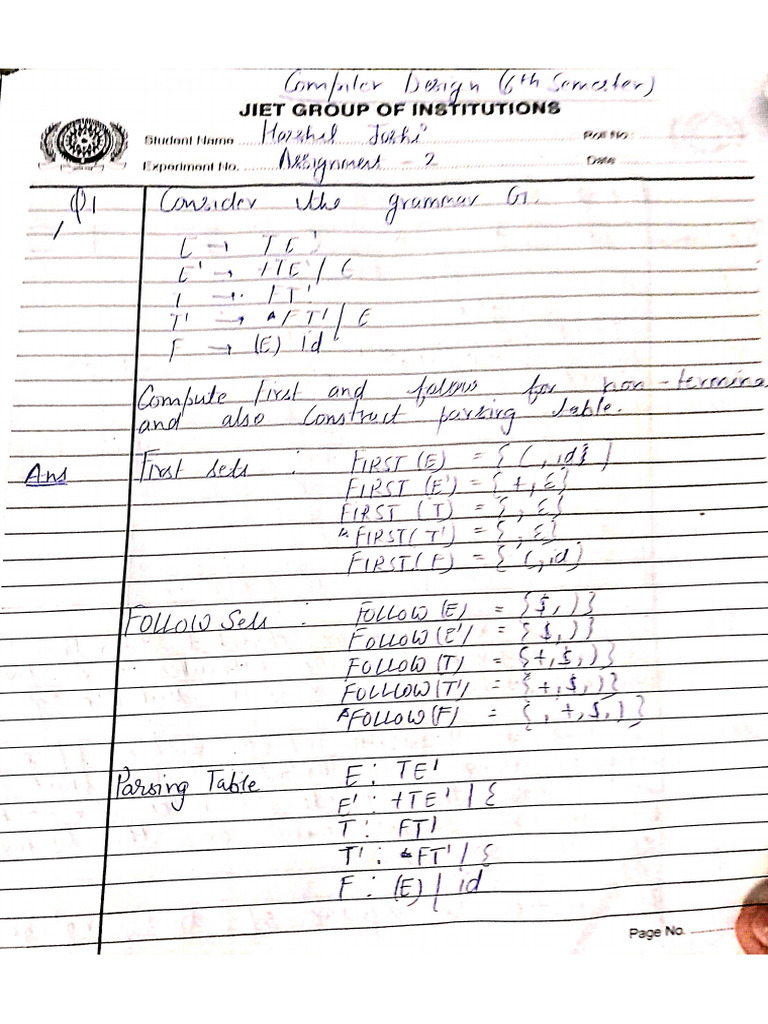 Compiler Design (6th Semester)
JIET GROUP OF INSTITUTIONS
Student Name Harshel Joshi Roll No.:
Experiment No. Assignment - 2 Date
Q1 Consider the grammar G.
E → TE'
E' → +TE' / ε
T → FT'
T' → *FT' / ε
F → (E) id
Compute first and follows for non-termina
and also construct parsing table.
Ans First sets : FIRST (E) = { (, id}
FIRST (E') = { +, ε}
FIRST (T) = { , ε}
FIRST (T') = { , ε}
FIRST (F) = { (, id}
FOLLOW Sets : FOLLOW (E) = {$, )}
FOLLOW (E') = {$, )}
FOLLOW (T) = {+, $, )}
FOLLOW (T') = {+, $, )}
*FOLLOW (F) = { , +, $, )}
Parsing Table E : TE'
E' : +TE' | ε
T : FT'
T' : *FT' | ε
F : (E) | id
Page No.